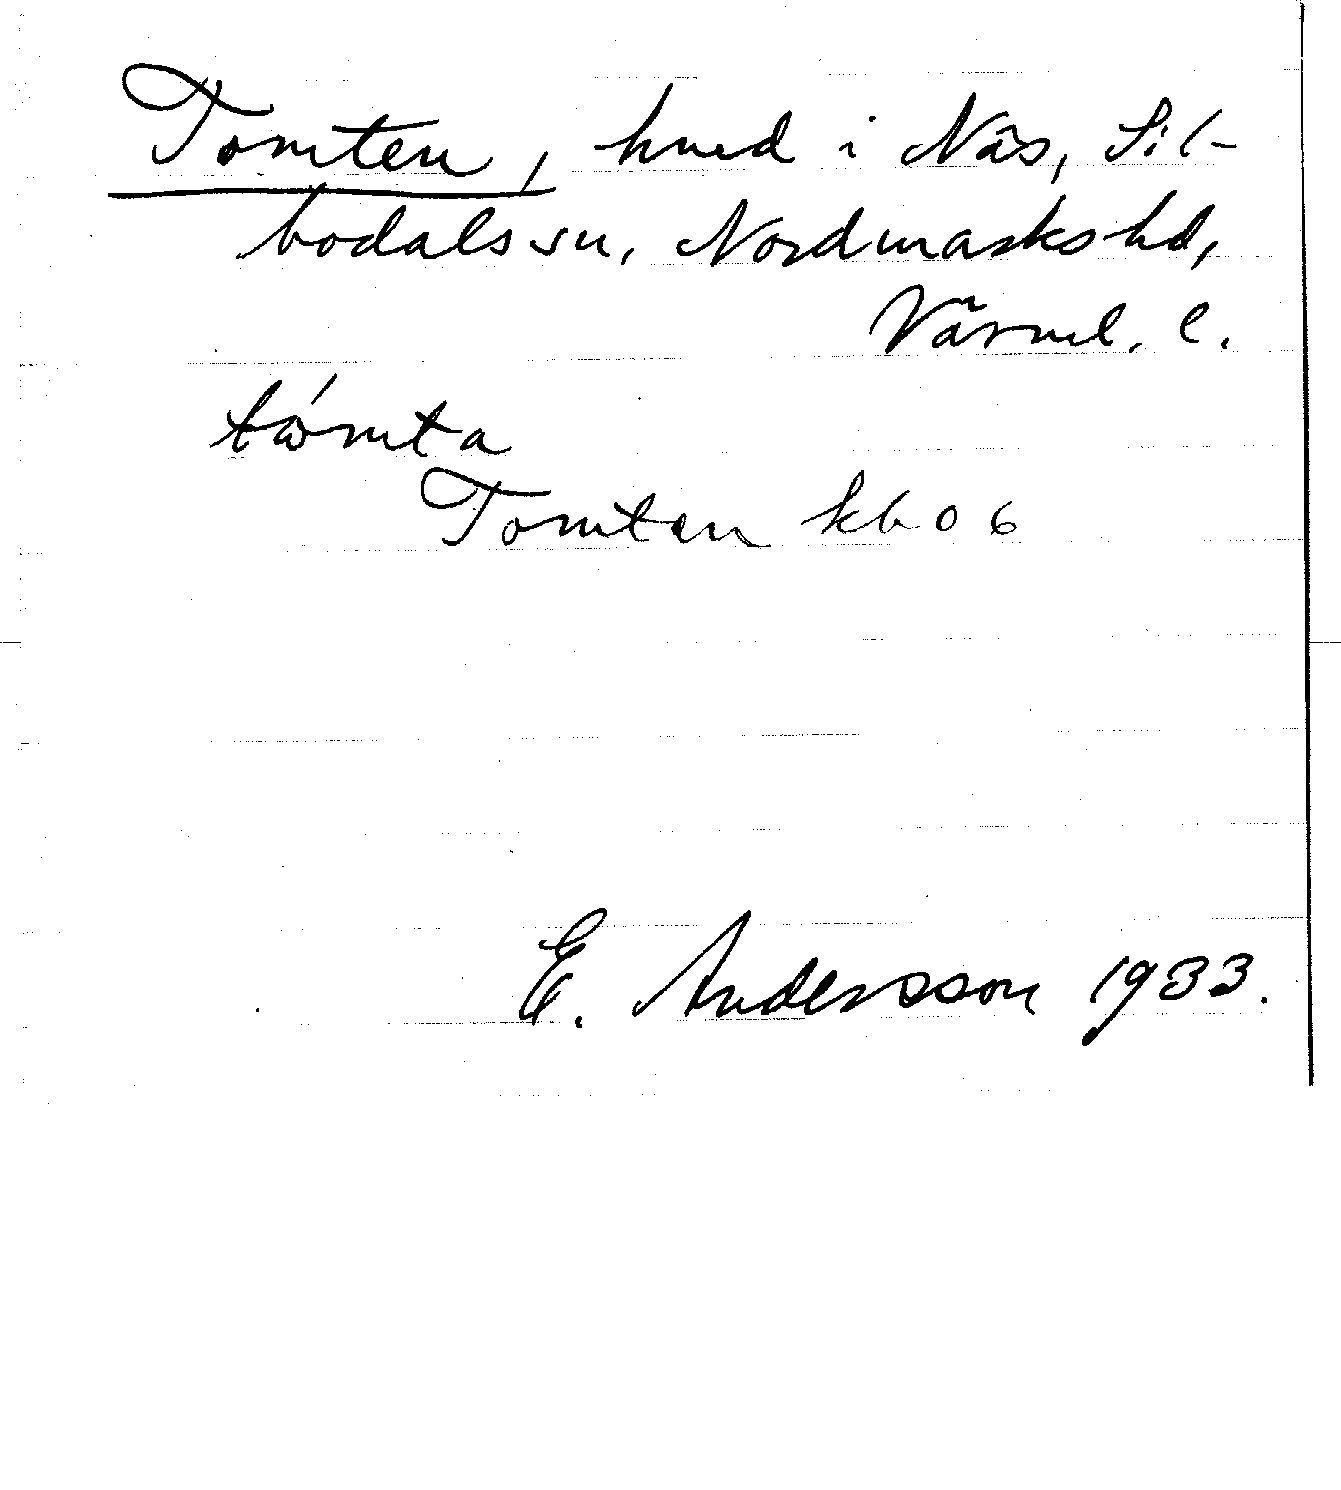 Tomten, hmd i Näs, Sil-
bodals sn, Nordmarks hd,
Värml. l.
tómta
Tomten kb 06
E. Andersson 1933.